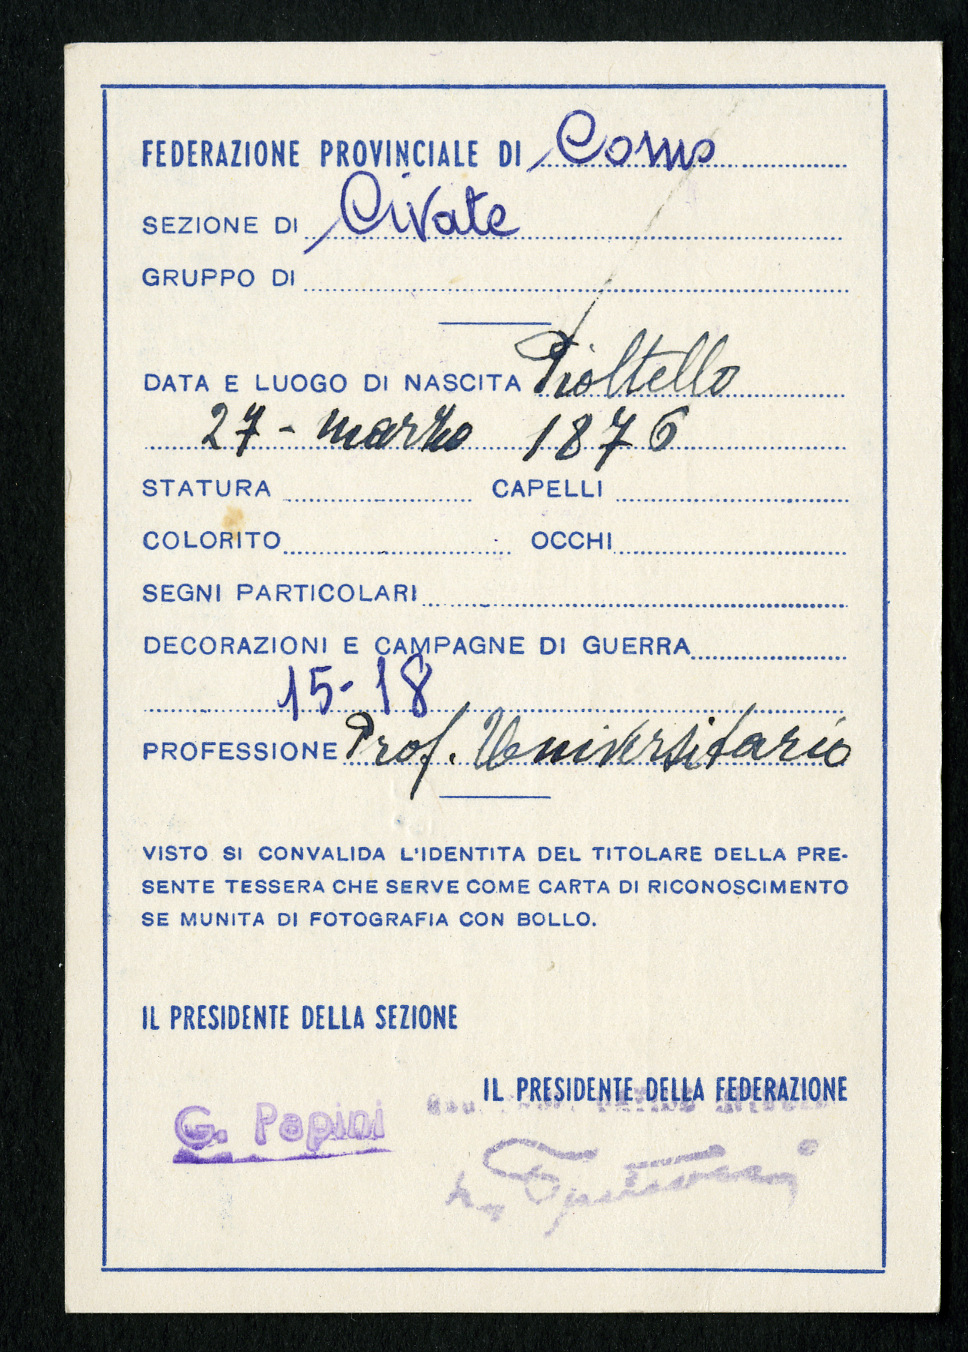 FEDERAZIONE PROVINCIALE DI Como
SEZIONE DI Civate
GRUPPO DI
DATA E LUOGO DI NASCITA Pioltello
27 - marzo 1876
STATURA CAPELLI
COLORITO OCCHI
SEGNI PARTICOLARI
DECORAZIONI E CAMPAGNE DI GUERRA
15-18
PROFESSIONE Prof. Universitario
VISTO SI CONVALIDA L'IDENTITA DEL TITOLARE DELLA PRE-
SENTE TESSERA CHE SERVE COME CARTA DI RICONOSCIMENTO
SE MUNITA DI FOTOGRAFIA CON BOLLO.
IL PRESIDENTE DELLA SEZIONE
IL PRESIDENTE DELLA FEDERAZIONE
G. Papini